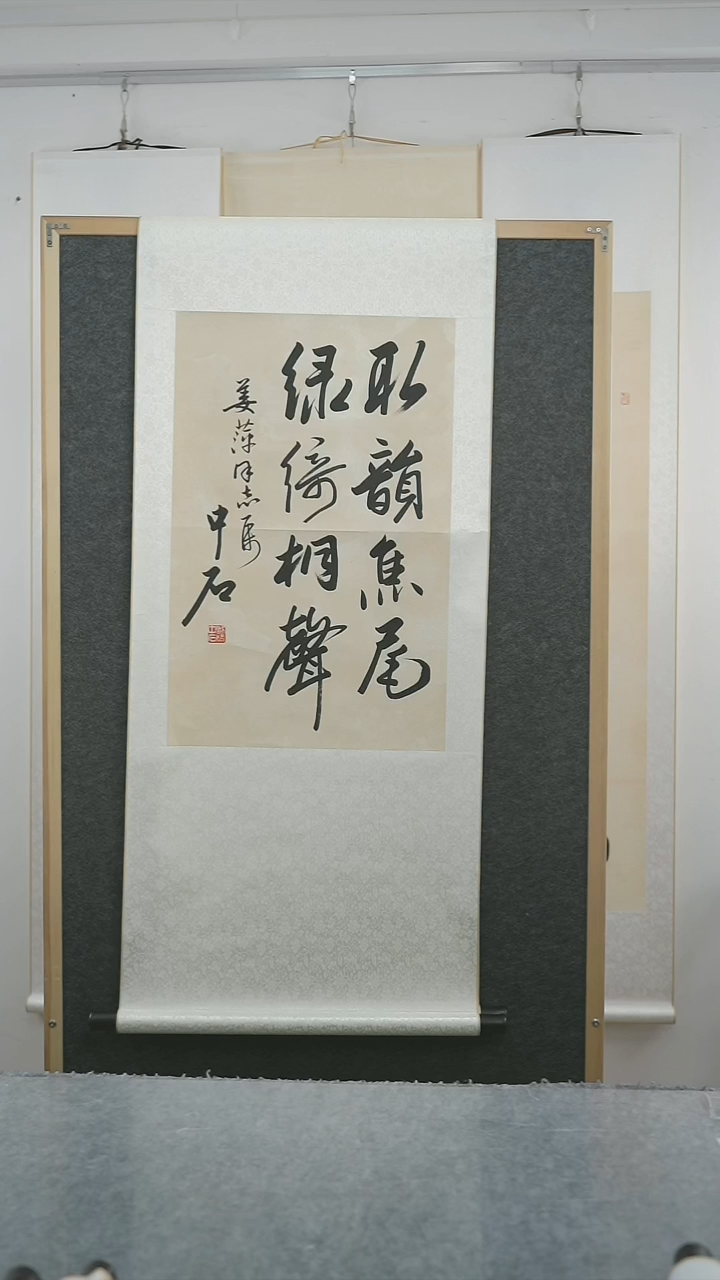 取韻焦尾
绿绮桐聲
姜萍同志属
中石